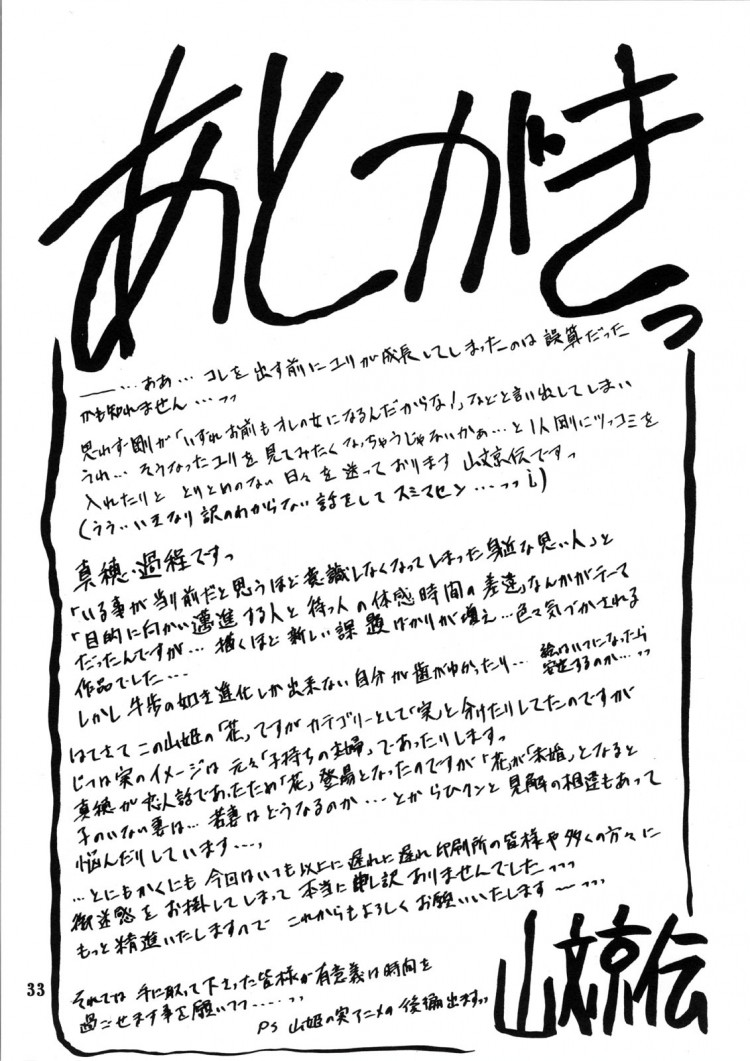 あとがきっ
――…ああ…コレを出す前にユリが成長してしまったのは誤算だった
かも知れません…っっ
思わず剛が「いずれお前もオレの女になるんだからな!」などと言い出してしまい
うれ…そうなったユリを見てみたくなっちゃうじゃないかぁ…と1人剛にツッコミを
入れたりと とりとめのない日々を送っております 山文京伝ですっ
(うう…いきなり訳のわからない話をしてスミマセン…っっ
真穂・過程ですっ
「いる事が当り前だと思うほど意識しなくなってしまった身近な思い人」と
「目的に向かい邁進する人と待つ人の体感時間の差違」なんかがテーマ
だったんですが…描くほど新しい課題ばかりが増え…色々気づかされる
作品でした…
しかし牛歩の如き進化しか出来ない自分が歯がゆかったり…
絵はいつになったら
安定するのか…っっ
はてさてこの山姫の「花」ですがカテゴリーとして「実」と分けたりしてたのですが
じつは実のイメージは元々「子持ちの主婦」であったりしますっ
真穂が恋人話であったため「花」登場となったのですが「花」が「未婚」となると
子のいない妻は…若妻はどうなるのか…とからひクンと見解の相違もあって
悩んだりしています…っ
…とにもかくにも今回はいつも以上に遅れに遅れ印刷所の皆様や多くの方々に
御迷惑をお掛けしてしまって本当に申し訳ありませんでしたっっっ
もっと精進いたしますので これからもよろしくお願いいたします~っっっ
それでは 手に取って下さった皆様が有意義な時間を
過ごせます事を願いつつ……っっ
PS 山姫の実アニメの後編出ますっっ
山文京伝
33